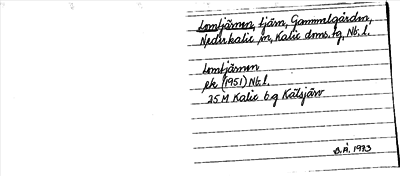 Lomtjärnen, tjärn, Gammelgården,
Nederkalix sn, Kalix dms. tg, Nb. l.
Lomtjärnen
ek (1951) Nb. l.
25 M Kalix b.g Kälsjärv
B.Å. 1983